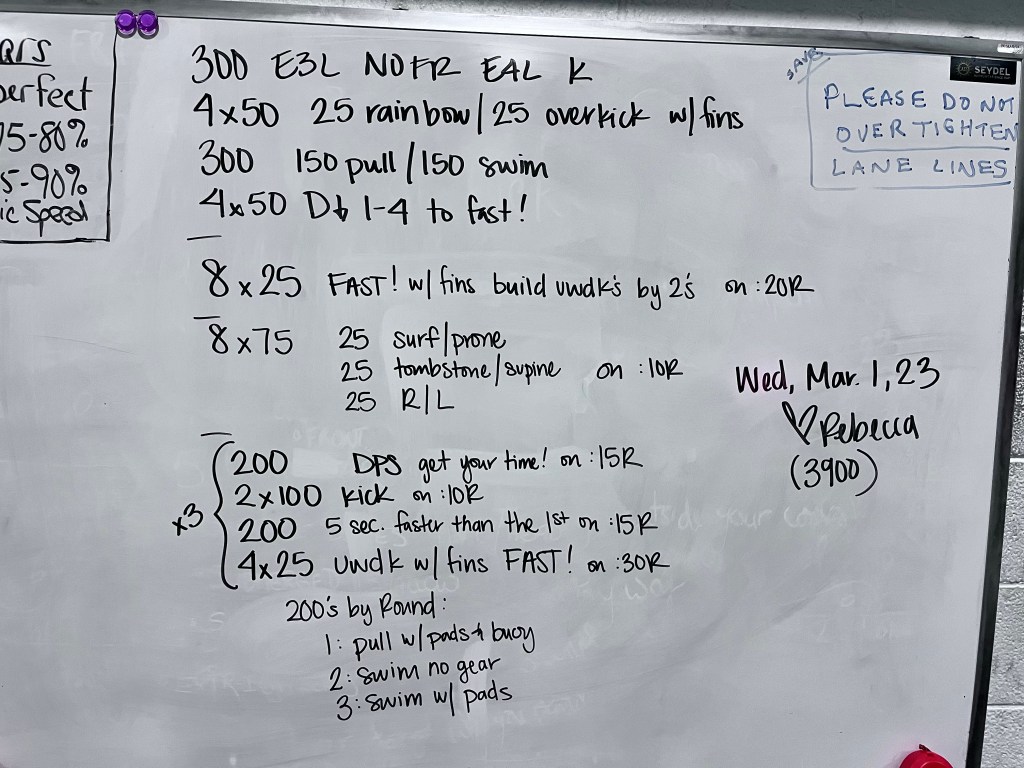 ars
perfect
75-80%
5-90%
ic Speed
300 E3L NOFR E4L K
4x50 25 rainbow/25 overkick w/ fins
300 150 pull/150 swim
4x50 D↓ 1-4 to fast!
8x25 FAST! w/ fins build uwdk's by 2's on :20R
8x75 25 surf/prone
25 tombstone/supine on :10R
25 R/L
x3
200 DPS get your time! on :15R
2x100 kick on :10R
200 5 sec. faster than the 1st on :15R
4x25 Uwdk w/ fins FAST! on :30R
200's by Round:
1: pull w/ pads + buoy
2: swim no gear
3: swim w/ pads
Wed, Mar. 1, 23
♡ Rebecca
(3900)
SAVE
PLEASE DO NOT
OVER TIGHTEN
LANE LINES
SEYDEL